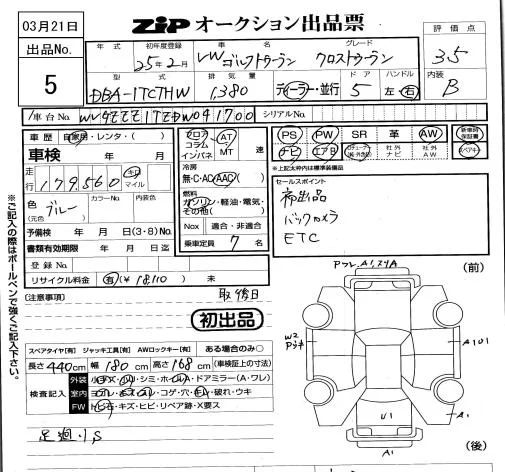 03月21日
ZIP オークション出品票
出品No.
5
年式 初年度登録 車名 グレード
25年2月 VW ゴルフトゥーラン クロストゥーラン
型式 排気量 ドア ハンドル
DBA-1TCTHW 1,380 ディーラー・並行 5 左・右
評価点
3.5
内装
B
車台No. シリアルNo.
車歴 自家用・レンタ・( )
車検 年 月
走行 179,560 キロ マイル
色 (元色) ブルー カラーNo. 内装色
予備検 年 月 日(3・8)No.
書類有効期限 年 月 日迄
登録No.
リサイクル料金 有(¥18,110) 未
フロア コラム インパネ AT MT 速
冷房
無・C・AC・AAC
燃料
ガソリン・軽油・電気・その他( )
Nox 適合・非適合
乗車定員 7 名
PS PW SR 革 AW 新車時保証書
ナビ エアB 社外ナビ 社外AW ペアキー
*上記太枠内は標準装備品
セールスポイント
初出品
バックカメラ
ETC
※ご記入の際はボールペンで強くご記入下さい。
(注意事項) 取、後日
初出品
スペアタイヤ[有] ジャッキ工具[有] AWロックキー[有] ある場合のみ○
長さ440cm 幅180cm 高さ168cm (車検証上の寸法)
検査記入
外装 小キズ・凹・シミ・ホイルA・ドアミラー(A・ワレ)
室内 ヨゴレ・キズ・スレ・コゲ・穴・モル・破れ・ウキ
FW トビ石・キズ・ヒビ・リペア跡・X要ス
足廻りS
(前)
W2
A1
U1
A1
(後)